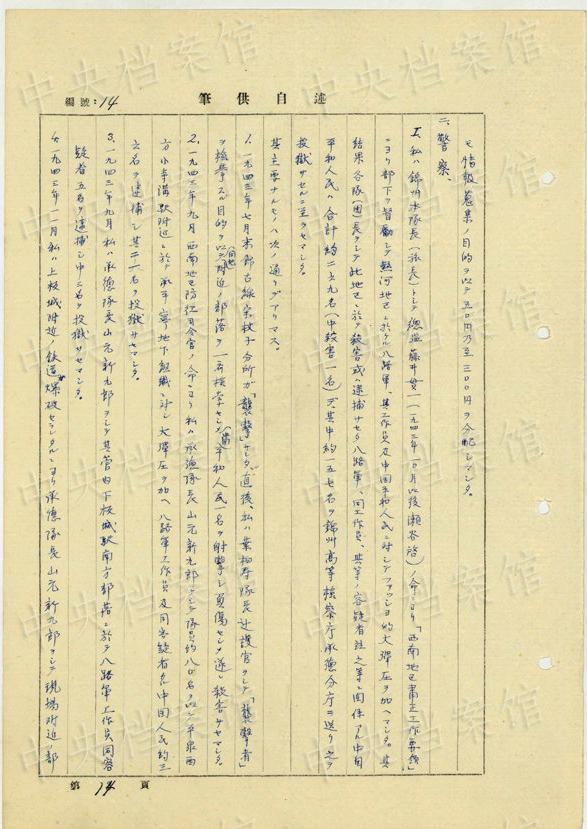 述自供筆
編號:14
モ情報蒐集ノ目的ヲ以テ五〇円乃至三〇〇円ヲ分配シマシタ。
二、警察、
私ハ錦州本隊長(旅長)トシテ總監藤井貫一(一九四三年一〇月以後瀬谷啓)ノ命ニヨリ「西南地区粛正工作要領」
ニヨリ部下ヲ督励シ熱河地区ニ於ケル八路軍、其工作員及中国平和人民ニ対シテファッショ的大彈圧ヲ加ヘマシタ。其
結果各隊(団)長ヲシテ此地区ニ於テ殺害或ハ逮捕サセタ八路軍、同工作員、其等ノ容疑者並之等ト関係アル中国
平和人民ハ合計約二六九名(中殺害一名)デ其中約一五七名ヲ錦州高等検察庁承德分庁ニ送リ之ヲ
投獄サセルニ至ラセマシタ。
其主要ナルモノハ次ノ通リデアリマス。
1. 一九四三年七月末部古線 杖子分所ガ「襲撃」サレタ直後、私ハ葉柏寿隊長辻護官ヲシテ「襲撃者」
ヲ検挙スル目的ヲ以テ附近ノ部落ヲ一斉検挙サセ 平和人民一名ヲ射撃シ負傷セシメ遂ニ殺害サセマシタ。
2. 一九四三年九月西南地区防衛司令官ノ命ニヨリ私ハ承德隊長山元新九郎ヲシテ隊員約八〇名ヲ以テ平泉西
方小寺溝駅附近ニ於テ承平寧地下組織ニ対シ大彈圧ヲ加ヘ八路軍工作員及同容疑者タル中国人民約三
六名ヲ逮捕シ其二一名ヲ投獄サセマシタ。
3. 一九四三年九月私ハ承德隊長山元新九郎ヲシテ其管内下板城駅南方部落ニ於テ八路軍工作員同容
疑者五名ヲ逮捕シ中二名ヲ投獄サセマシタ。
4. 一九四三年一一月私ハ上板城附近ノ鉄道ガ爆破セラレタルニヨリ承德隊長山元新九郎ヲシテ現場附近ノ部
第14頁
中央档案馆